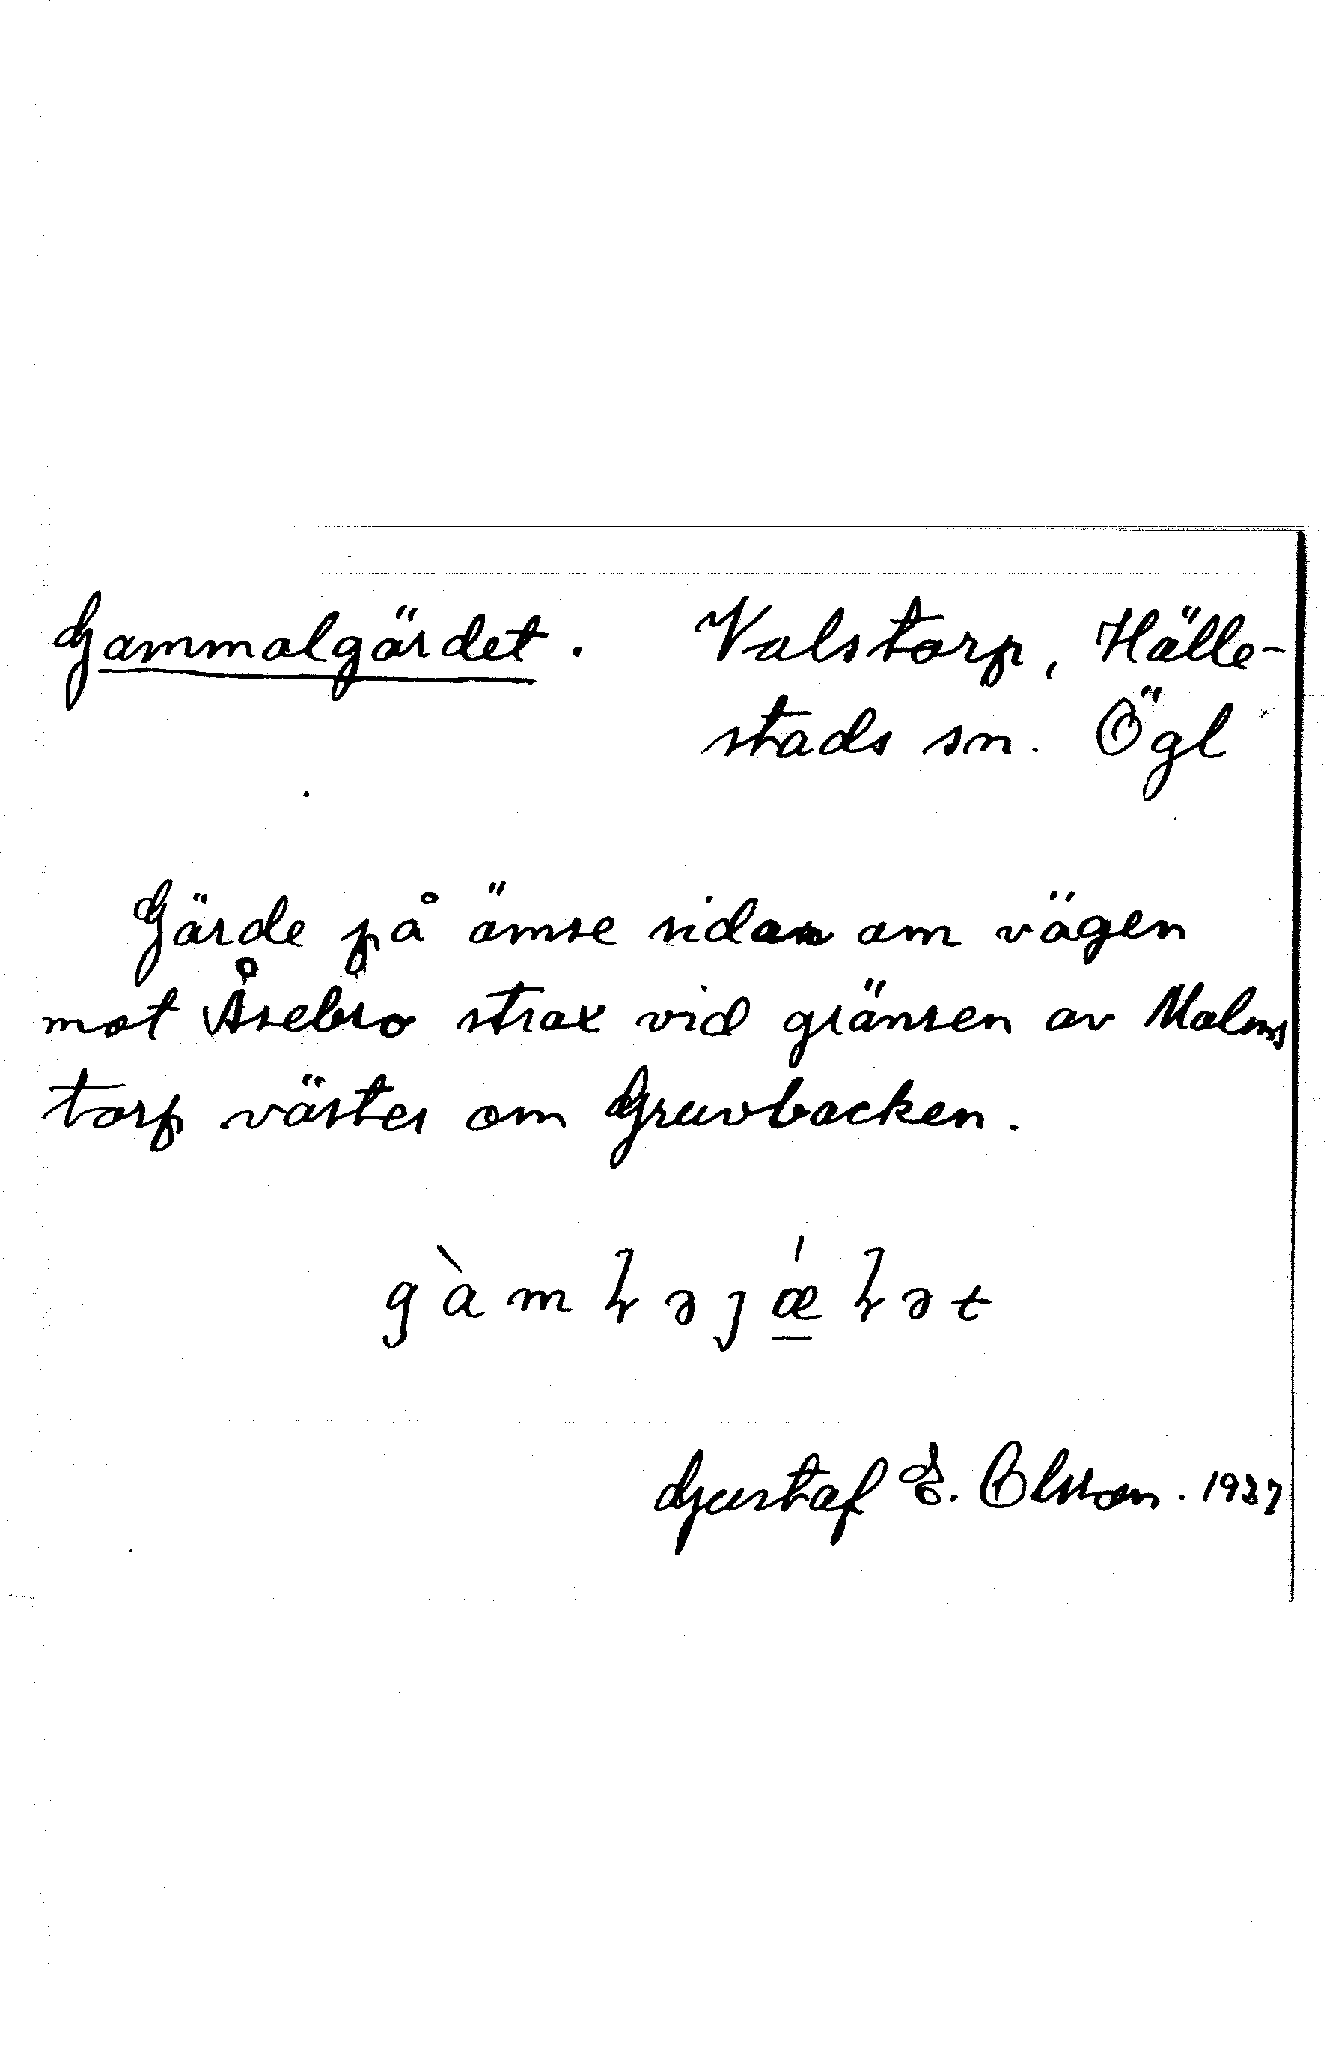 Gammalgärdet. Valstorp, Hälle-
stads sn. Ögl
Gärde på ömse sidan om vägen
mot Åsebro strax vid gränsen av Malms
torp väster om Gruvbacken.
Gustaf E. Olsson. 1937